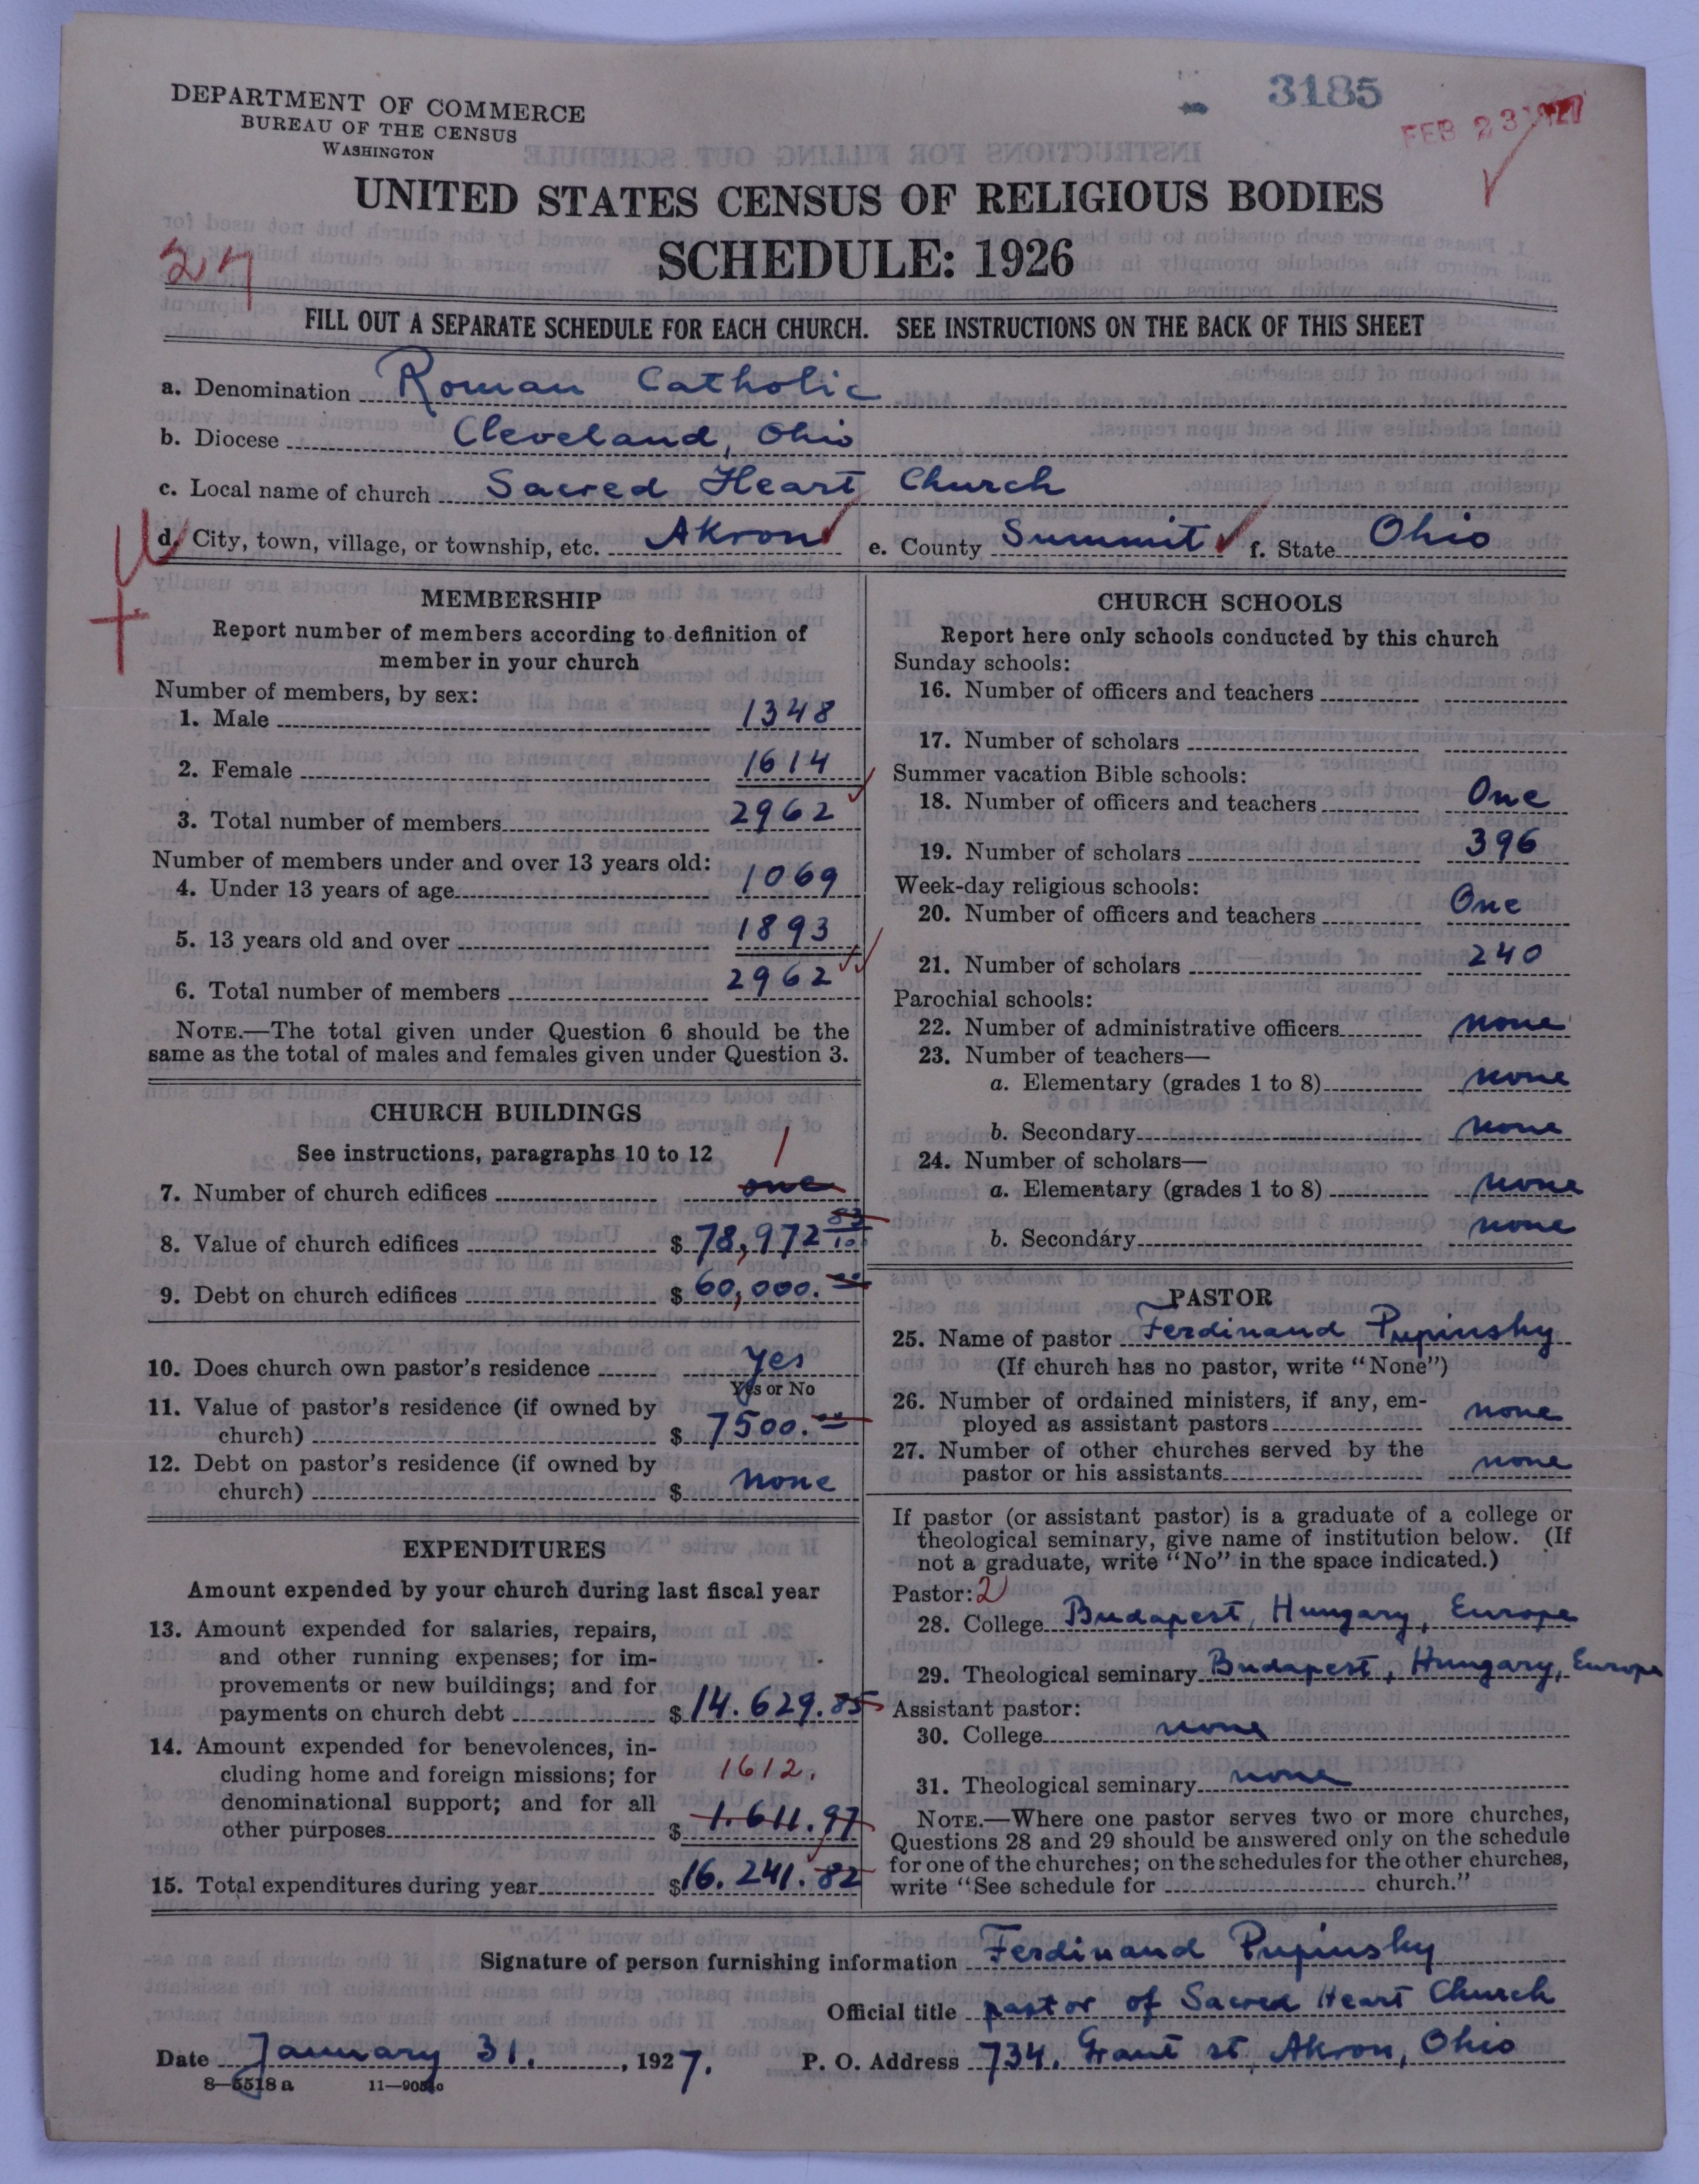 3185
FEB 23 1927
DEPARTMENT OF COMMERCE
BUREAU OF THE CENSUS
WASHINGTON
UNITED STATES CENSUS OF RELIGIOUS BODIES
SCHEDULE: 1926
27
FILL OUT A SEPARATE SCHEDULE FOR EACH CHURCH. SEE INSTRUCTIONS ON THE BACK OF THIS SHEET
a. Denomination Roman Catholic
b. Diocese Cleveland, Ohio
c. Local name of church Sacred Heart Church
d. City, town, village, or township, etc. Akron e. County Summit f. State Ohio
MEMBERSHIP
Report number of members according to definition of
member in your church
Number of members, by sex:
1. Male 1348
2. Female 1614
3. Total number of members 2962
Number of members under and over 13 years old:
4. Under 13 years of age 1069
5. 13 years old and over 1893
6. Total number of members 2962
NOTE.—The total given under Question 6 should be the
same as the total of males and females given under Question 3.
CHURCH BUILDINGS
See instructions, paragraphs 10 to 12
1
7. Number of church edifices one
8. Value of church edifices $ 78,972 83/100
9. Debt on church edifices $ 60,000.00
10. Does church own pastor's residence yes
Yes or No
11. Value of pastor's residence (if owned by
church) $ 7500.00
12. Debt on pastor's residence (if owned by
church) $ none
EXPENDITURES
Amount expended by your church during last fiscal year
13. Amount expended for salaries, repairs,
and other running expenses; for im-
provements or new buildings; and for
payments on church debt $ 14.629.85
14. Amount expended for benevolences, in-
cluding home and foreign missions; for 1612.
denominational support; and for all
other purposes $ 1.611.97
15. Total expenditures during year $ 16.241.82
CHURCH SCHOOLS
Report here only schools conducted by this church
Sunday schools:
16. Number of officers and teachers
17. Number of scholars
Summer vacation Bible schools:
18. Number of officers and teachers One
19. Number of scholars 396
Week-day religious schools:
20. Number of officers and teachers One
21. Number of scholars 240
Parochial schools:
22. Number of administrative officers none
23. Number of teachers—
a. Elementary (grades 1 to 8) none
b. Secondary none
24. Number of scholars—
a. Elementary (grades 1 to 8) none
b. Secondary none
PASTOR
25. Name of pastor Ferdinand Pupinsky
(If church has no pastor, write "None")
26. Number of ordained ministers, if any, em-
ployed as assistant pastors none
27. Number of other churches served by the
pastor or his assistants none
If pastor (or assistant pastor) is a graduate of a college or
theological seminary, give name of institution below. (If
not a graduate, write "No" in the space indicated.)
Pastor: 2
28. College Budapest, Hungary, Europe
29. Theological seminary Budapest, Hungary, Europe
Assistant pastor:
30. College none
31. Theological seminary none
NOTE.—Where one pastor serves two or more churches,
Questions 28 and 29 should be answered only on the schedule
for one of the churches; on the schedules for the other churches,
write "See schedule for church."
Signature of person furnishing information Ferdinand Pupinsky
Official title pastor of Sacred Heart Church
Date January 31., 1927. P. O. Address 734. Grant st, Akron, Ohio
8—5518 a